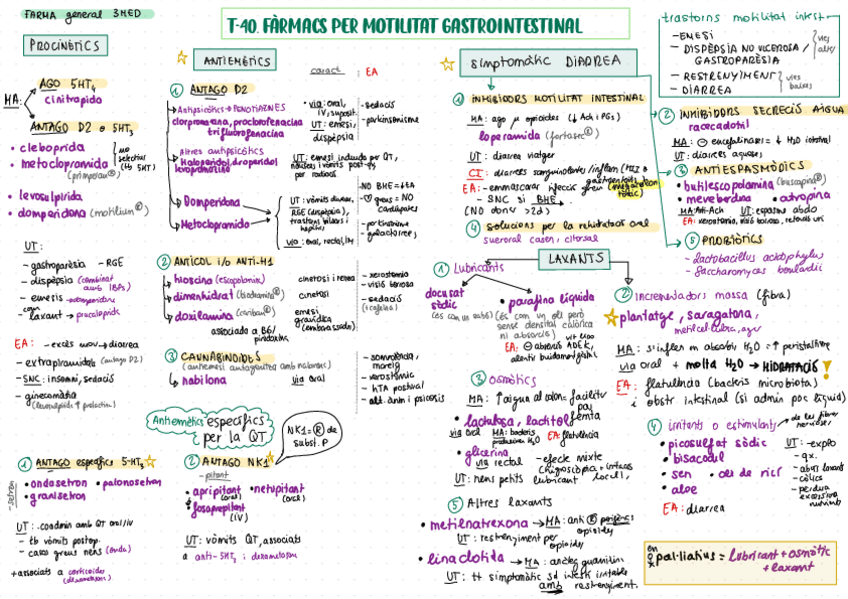 FARMA general 3MED
T-40. FÀRMACS PER MOTILITAT GASTROINTESTINAL
trastorns motilitat intest.
- EMESI
- DISPÈPSIA NO ULCEROSA /
GASTROPARÈSIA
vies altes
- RESTRENYIMENT
- DIARREA
vies baixes
PROCINÈTICS
MA:
AGO 5HT4
cinitaprida
ANTAGO D2 o 5HT3
• cleboprida
• metoclopramida
(primperan®)
no selectiu
(tb 5HT)
• levosulpirida
• domperidona (motilium®)
UT:
- gastroparèsia - RGE
- dispèpsia (combinat
amb IBPs)
- emesis
- com laxant → prucaloprida
EA: - excés mov → diarrea
- extrapiramidals (antago D2)
- SNC: insomni, sedació
- ginecomàstia
(levosulpirida ↑ prolactina)
ANTIEMÈTICS
caract : EA
① ANTAGO D2
Antipsicòtics → FENOTIAZINES
clorpromazina, proclorofenacina
trifluorofenacina
• via: oral,
IV, suposit.
UT: emesi,
dispèpsia
- sedació
- parkinsonisme
Altres antipsicòtics
Haloperidol, droperidol
levopromazina
UT: emesi induida per QT,
nàusees i vòmits post-qx
per radiació
Domperidona
Metoclopramida
UT: vòmits diversos,
RGE (dispèpsia),
trastorns biliars i
hepàtics
via: oral, rectal, IV
- NO BHE = ↓EA
greus = NO
cardiòpates
- parkinsonisme
- galactorrea
② ANTICOL i/o ANTI-H1
hioscina (escopolamina)
cinetosi i renea
- xerostomia
- visió borrosa
dimenhidrat (biodramina®)
cinetosi
- sedació
(+ cafeïna)
doxilamina (cariban®)
associada a B6/
piridoxina
emesi
gravídica
(embarassada)
③ CANNABINOIDES
(antiemesi antagonitza amb naloxona)
nabilona
via oral
- somnolència,
mareig
- xerostomia
- hTA postural
- alt. ànim i psicosis
Antiemètics específics
per la QT
NK1 = ® de
subst. P
① ANTAGO específics 5-HT3
- setron
• ondasetron • palonosetron
• granisetron
UT: - coadmin amb QT oral/iv
- tb vòmits postop.
- casos greus nens (onda)
+ associats a corticoides
(dexametason)
② ANTAGO NK1
- pitant
• aprepitant • netupitant
(oral) (oral)
• fosaprepitant
(IV)
UT: vòmits QT, associats
a anti-5HT3 i dexametasona
simptomàtic DIARREA
① INHIBIDORS MOTILITAT INTESTINAL
MA: ago µ opioides (↓ Ach i PGs)
loperamida (fortasec®)
UT: diarrea viatger
CI: diarrees sanguinolentes/inflam (MII)
gastroenteritis
EA: - emmascarar infecció greu (megacolon
tòxic)
- SNC si BHE
(NO donar >2d)
④ solucions per la rehidratació oral
sueroral casen, citorsal
② INHIBIDORS SECRECIÓ AIGUA
racecadotil
MA: ⊖ encefalinases = ↓ H2O intestinal
UT: diarrees aquoses
③ ANTIESPASMÒDICS
• butilescopolamina (buscapina®)
• meveberdina • atropina
MA: Anti-Ach UT: espasmes abdo
EA: xerostomia, visió borrosa, retenció uri
⑤ PROBIÒTICS
- lactobacillus acidophylus
- Saccharomyces boulardii
LAXANTS
① Lubricants
docusat
sòdic
(és com un sabó)
• parafina líquida
(és com un oli però
sense densitat calòrica
ni absorció)
EA: ⊖ absorció ADEK,
vit lipo
alentir buidament gàstric
② incrementadors massa (fibra)
plantatge, saragatona,
metilcel·lulosa, agar
MA: s'inflen en absorbir H2O = ↑ peristaltisme
via oral + molta H2O → HIDRATACIÓ!
EA: flatulència (bacteris microbiota)
i obstr intestinal (si admin poc líquid)
③ osmòtics
MA: ↑ aigua al colon = facilitar
pas
femta
• lactulosa, lactitol
via oral MA: bacteris
produeixen H2O EA: flatulència
• glicerina
via rectal - efecte mixte
higroscòpica + irritació
local,
lubricant
UT: nens petits
④ irritants o estimulants
de les fibres
nervioses
• picosulfat sòdic
• bisacodil
• sen • oli de ricí
• aloe
EA: diarrea
UT: - explo
- qx.
- abús laxants
- còlics
- pèrdua
excessiva
nutrients
⑤ Altres laxants
• metilnatrexona → MA: anti ® perifèrics
opioides
UT: restrenyiment per
opioides
• linaclotida → MA: anàleg guanilina
UT: tt simptomàtic sd intestí irritable
amb restrenyiment.
pal·liatius = lubricant + osmòtic
+ laxant